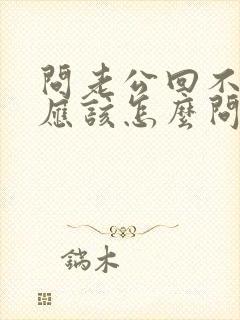 問老公回不
應該怎麼問
鎬木